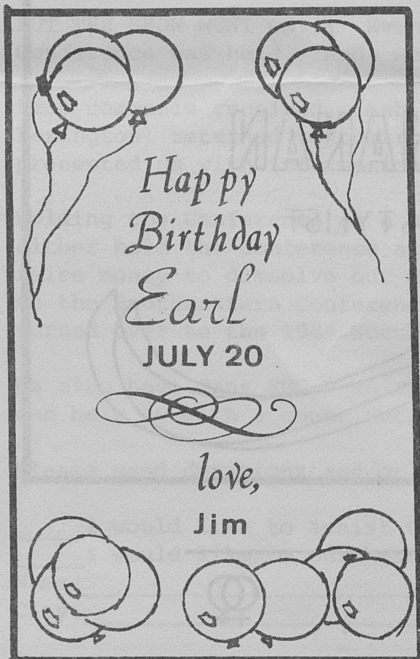 Happy
Birthday
Earl
JULY 20
love,
Jim